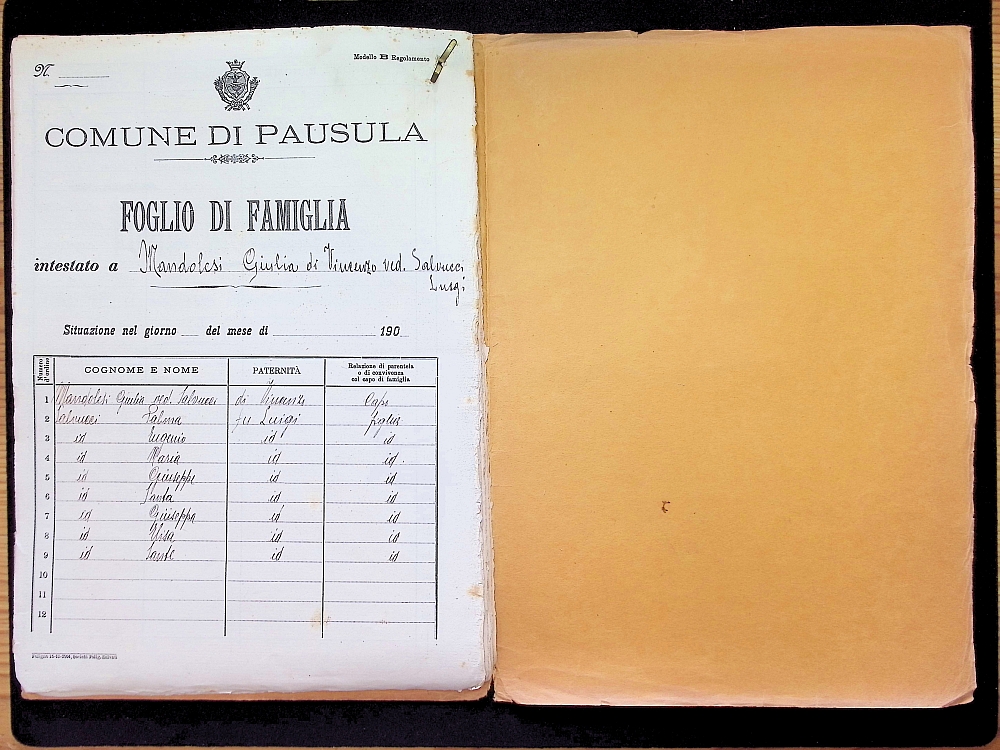 N.
Modello B Regolamento
COMUNE DI PAUSULA
FOGLIO DI FAMIGLIA
intestato a Mandolesi Giulia di Vincenzo ved. Salvucci
Luigi
Situazione nel giorno del mese di 190
Numero d'ordine COGNOME E NOME PATERNITÀ Relazione di parentela o di convivenza col capo di famiglia
1 Mandolesi Giulia ved. Salvucci di Vincenzo Capo
2 Salvucci Palma fu Luigi figlia
3 id Eugenio id id
4 id Maria id id.
5 id Giuseppe id id
6 id Santa id id
7 id Giuseppa id id
8 id id id
9 id Sante id id
10
11
12